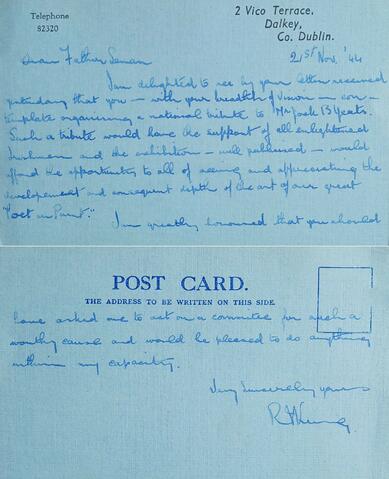 Telephone
82320
2 Vico Terrace,
Dalkey,
Co. Dublin.
21st Nov. '44
Dear Father Senan
I am delighted to see by your letter received
yesterday that you – with your breadth of vision – con-
template organising a national tribute to Mr Jack B Yeats.
Such a tribute would have the support of all enlightened
Irishmen and the exhibition – well publicised – would
afford the opportunity to all of seeing and appreciating the
development and consequent depth of the art of our great
"Poet in Paint."
I am greatly honoured that you should
POST CARD.
THE ADDRESS TO BE WRITTEN ON THIS SIDE.
have asked me to act on a committee for such a
worthy cause and would be pleased to do anything
within my capacity.
Very sincerely yours